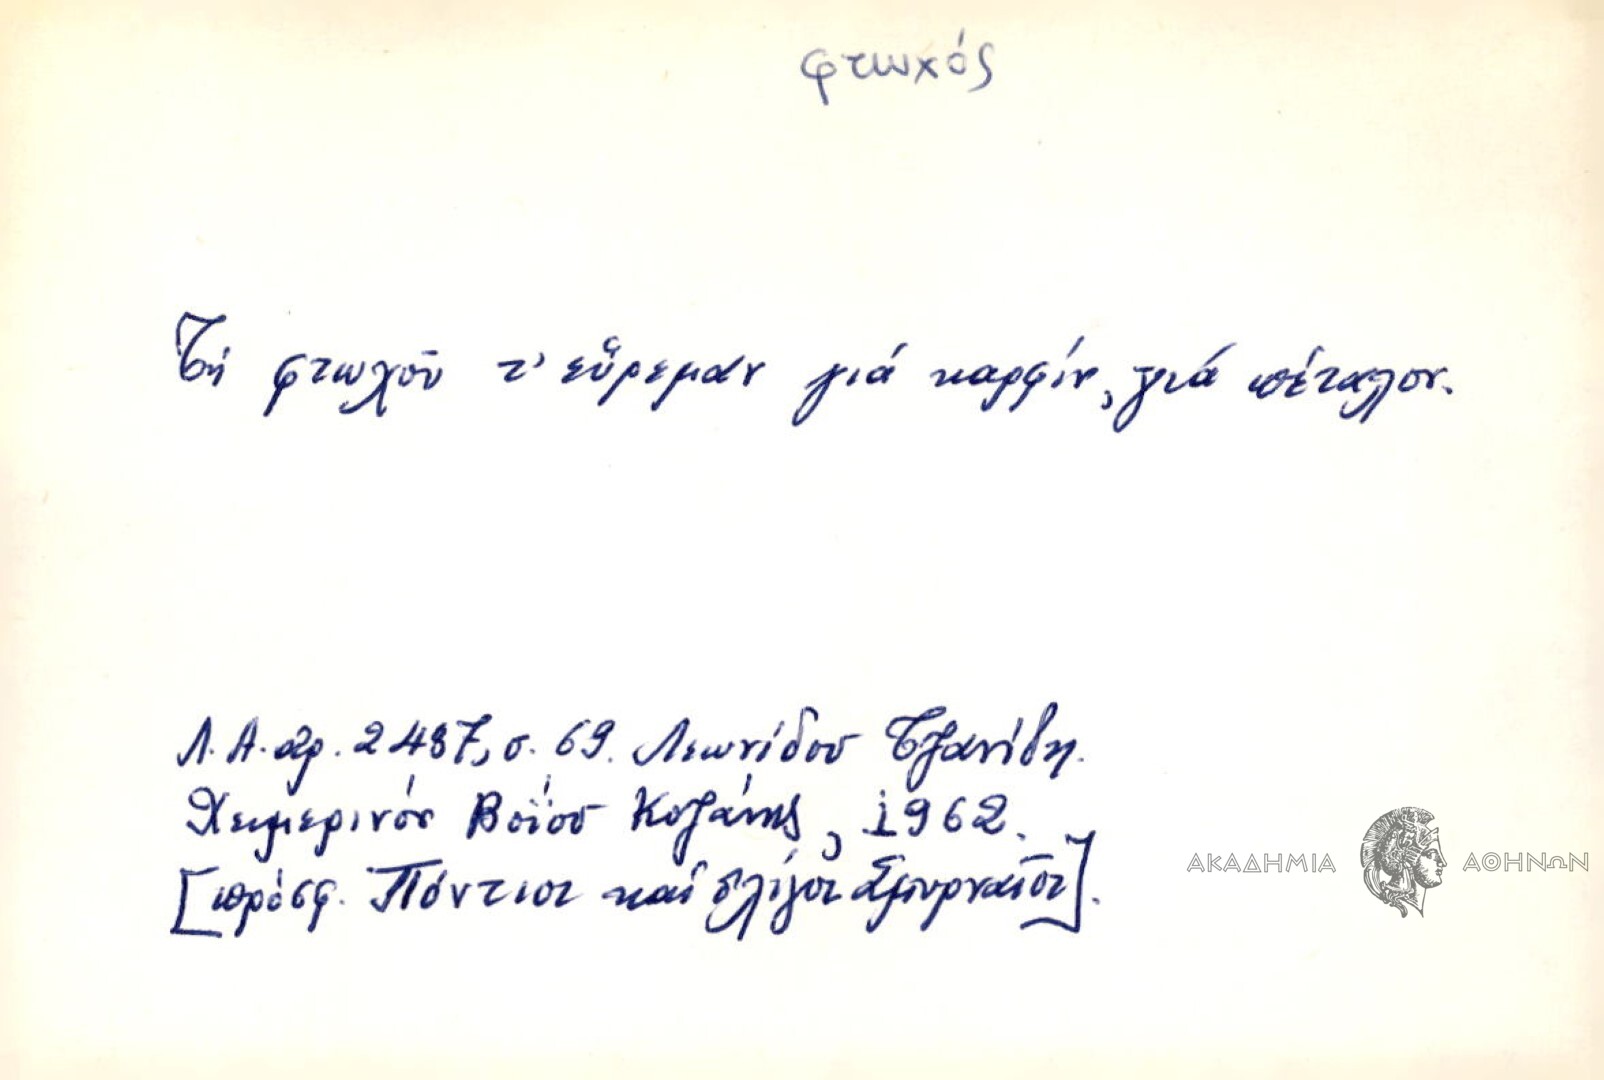 φτωχός
Τή φτωχοῦ τ' εὕρεμαν γιά καρφίν, γιά πέταλον.
Λ. Α. αρ. 2487, σ. 69. Λεωνίδου Τζανίδη.
Χειμερινόν Βοΐου Κοζάνης, 1962.
[πρόσφ. Πόντιοι καί ὀλίγοι Σμυρναῖοι].
ΑΚΑΔΗΜΙΑ ΑΘΗΝΩΝ